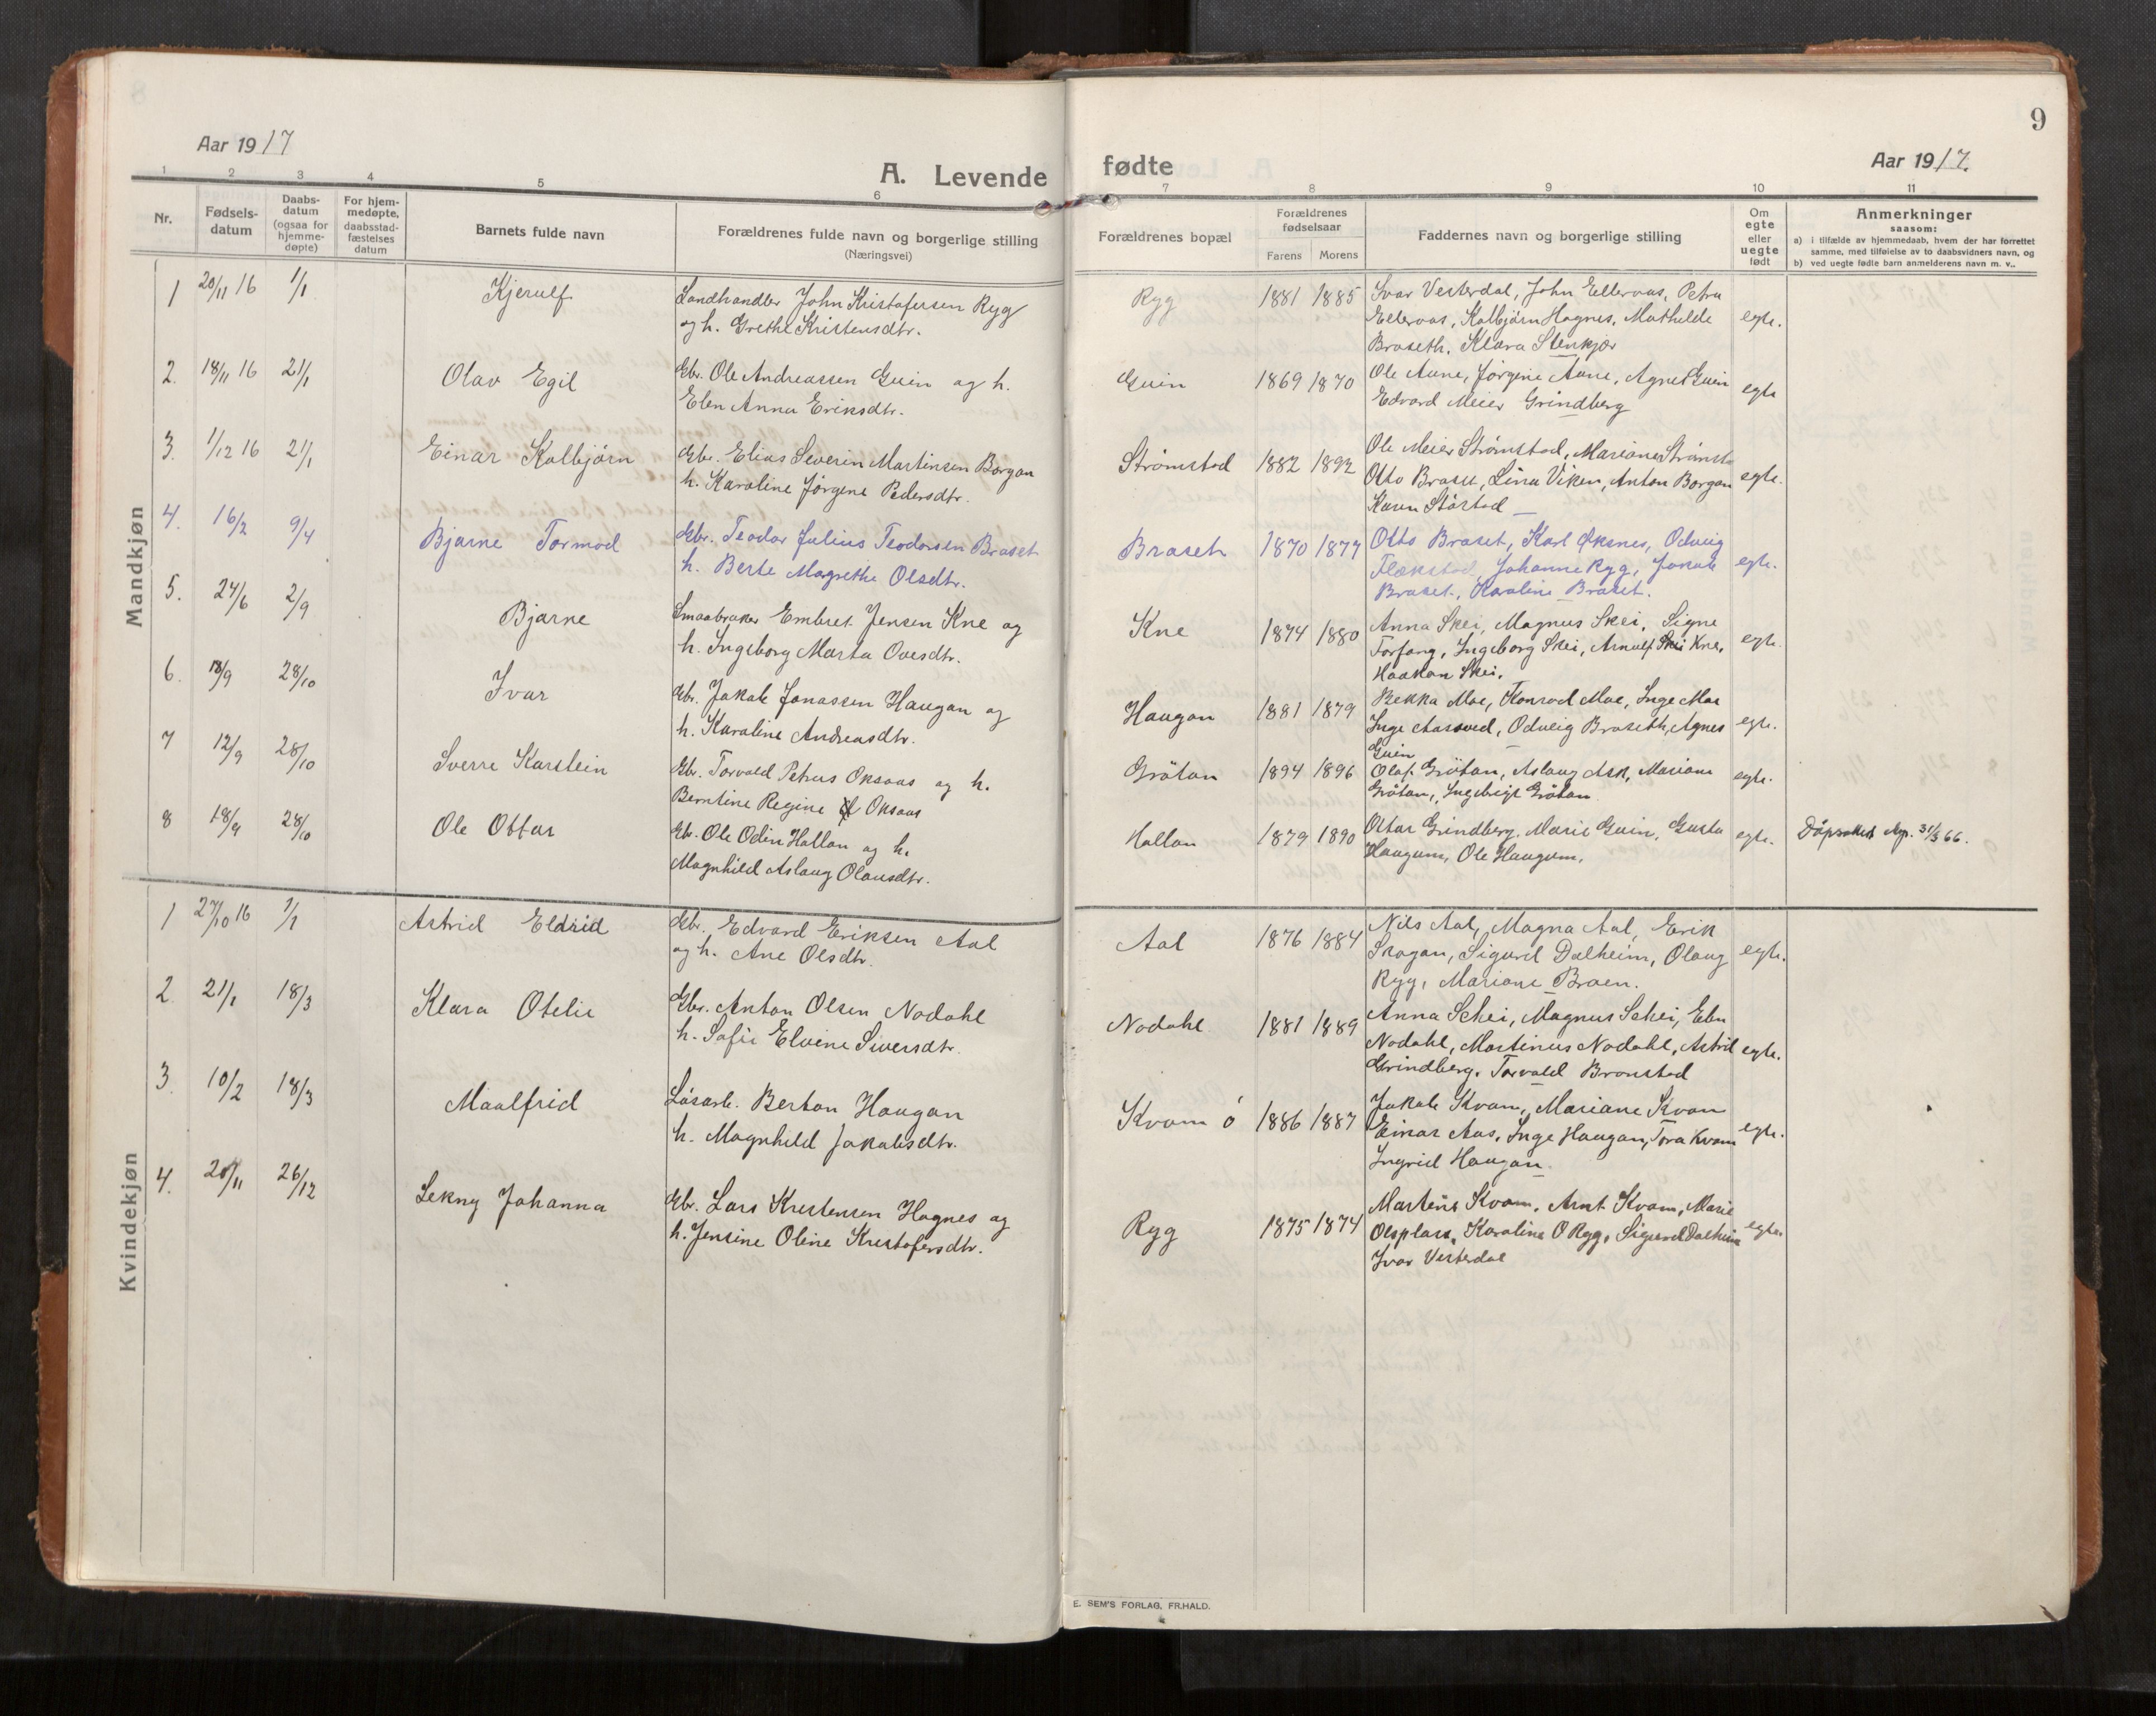 9
Aar 1917
Aar 1917.
A. Levende fødte
1 2 3 4 5 6 7 8 9 10 11
Nr.
Fødsels-
datum
Daabs-
datum
(ogsaa for
hjemme-
døpte)
For hjem-
medøpte,
daabsstad-
fæstelses
datum
Barnets fulde navn
Forældrenes fulde navn og borgerlige stilling
(Næringsvei)
Forældrenes bopæl
Forældrenes
fødselsaar
Farens Morens
Faddernes navn og borgerlige stilling
Om
egte
eller
uegte
født
Anmerkninger
saasom:
a) i tilfælde av hjemmedaab, hvem der har forrettet
samme, med tilføielse av to daabsvidners navn, og
b) ved uegte fødte barn anmelderens navn m. v..
Mandkjøn
1 20/11 16 1/1 Kjerulf Landhandler John Kristofersen Ryg Ryg 1881 1885 Ivar Vesterdal, John Ellevaas, Petra
og h. Grethe Kristensdtr. Ellevaas, Kolbjørn Hognes, Mathilde egte.
Braseth, Klara Stenkjær
2. 18/11 16 21/1 Olav Egil Gbr. Ole Andreassen Guin og h. Guin 1869 1870 Ole Aune, Jørgine Aune, Agnes Guin egte
Elen Anna Eriksdtr. Edvard Meier Grindberg
3. 1/12 16 21/1 Einar Kolbjørn Gbr. Elias Severin Martinsen Borgan Strømstad 1882 1892 Ole Meier Strømstad, Mariane
h. Karoline Jørgine Pedersdtr. Otto Braset, Lina Viken, Anton Borgan egte.
Karen Störstad
4. 16/2 9/4 Bjarne Tormod Gbr. Teodor Julius Teodorsen Braset Braset 1870 1877 Otto Braset, Karl Øksnes, Odveig
h. Berte Margrethe Olsdtr. Flækstad, Johanne Ryg, Jakob egte.
Braset, Karoline Braset.
5. 24/6 2/9 Bjarne Smaabruker Embret Jensen Kne og Kne 1874 1880 Anna Skei, Magnus Skei, Signe
h. Ingeborg Marta Ovesdtr. Forfang, Ingeborg Skei, Arnulf Skei Kne, egte.
Haakon Skei.
6. 18/9 28/10 Ivar Gbr. Jakob Jonassen Haugan og Haugan 1881 1879 Bekka Moe, Konrad Moe, Inge Moe
h. Karoline Andreasdtr. Inge Aarsved, Odveig Braseth, Agnes egte.
Guin
7 12/9 28/10 Sverre Karstein Gbr. Torvald Petrus Oksaas og h. Grötan 1894 1896 Olaf Grötan, Aslaug Ask, Mariane egte.
Berntine Regine Oksaas Grötan, Ingebrigt Grötan
8 18/9 28/10 Ole Ottar Gbr. Ole Odin Hallan og h. Hallan 1879 1890 Ottar Grindberg, Marie Guin, Gusta egte. 31/3 66.
Magnhild Aslaug Olausdtr. Haugum, Ole Haugum.
Kvindekjøn
1 27/10 16 1/1 Astrid Eldrid Gbr. Edvard Eriksen Aal Aal 1876 1884 Nils Aal, Magna Aal, Erik
og h. Ane Olsdtr. Skogan, Sigurd Dalheim, Olaug egte.
Ryg, Mariane Braen.
2. 21/1 18/3 Klara Otelie Gbr. Anton Olsen Nodahl Nodahl 1881 1889 Anna Schei, Magnus Schei, Elen
h. Sofie Elvine Siversdtr. Nodahl, Martinus Nodahl, Astrid egte.
Grindberg, Torvald Bronstad
3. 10/2 18/3 Maalfrid Løsarb. Berton Haugan Kvam ö 1886 1887 Jakob Kvam, Mariane Kvam
h. Magnhild Jakobsdtr. Einar Aas, Inge Haugan, Tora Kvam egte.
Ingrid Haugan.
4. 20/11 26/12 Lekny Johanna Gbr. Lars Kristensen Hognes og Ryg 1875 1874 Martin Kvam, Arnt Kvam, Marie
h. Jensine Oline Kristofersdtr. Oksplass, Karoline O Ryg, Sigurd Dalheim egte.
Ivar Vesterdal
E. SEM'S FORLAG, FR.HALD.